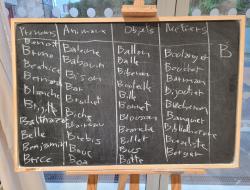 Prénoms Animaux Objets Métiers
Benoît Baleine Ballon Boulanger
Bruno Babouin Balle Boucher
Béatrice Bison Biberon Barman
Bernard Bar Bouteille Bijoutier
Blanche Bille Bûcheron
Brigitte Biche Bonnet Banquier
Balthazar Blouson Bibliothécaire
Belle Brebis Branche
Benjamin Bouc Bus Berger
Brice Boa Botte
B